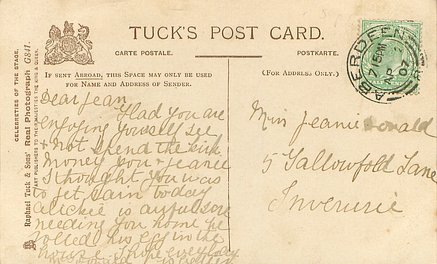 TUCK'S POST CARD.
CARTE POSTALE.
POSTKARTE.
IF SENT ABROAD, THIS SPACE MAY ONLY BE USED
FOR NAME AND ADDRESS OF SENDER.
(FOR ADDRESS ONLY.)
CELEBRITIES OF THE STAGE.
Raphael Tuck & Sons' Real Photograph
ART PUBLISHERS TO THEIR MAJESTIES THE KING & QUEN.
ABERDEEN
7 15PM
AP
07
Dear Jean
Glad you are
enjoying yourself see
& not spend the
money you & Jeanie
I thought you was
to get pain today
is awful sore
needing you home he
rolled his egg in the
house I hope
Miss Jeanie Donald
5 Gallowfold Lane
Inverurie